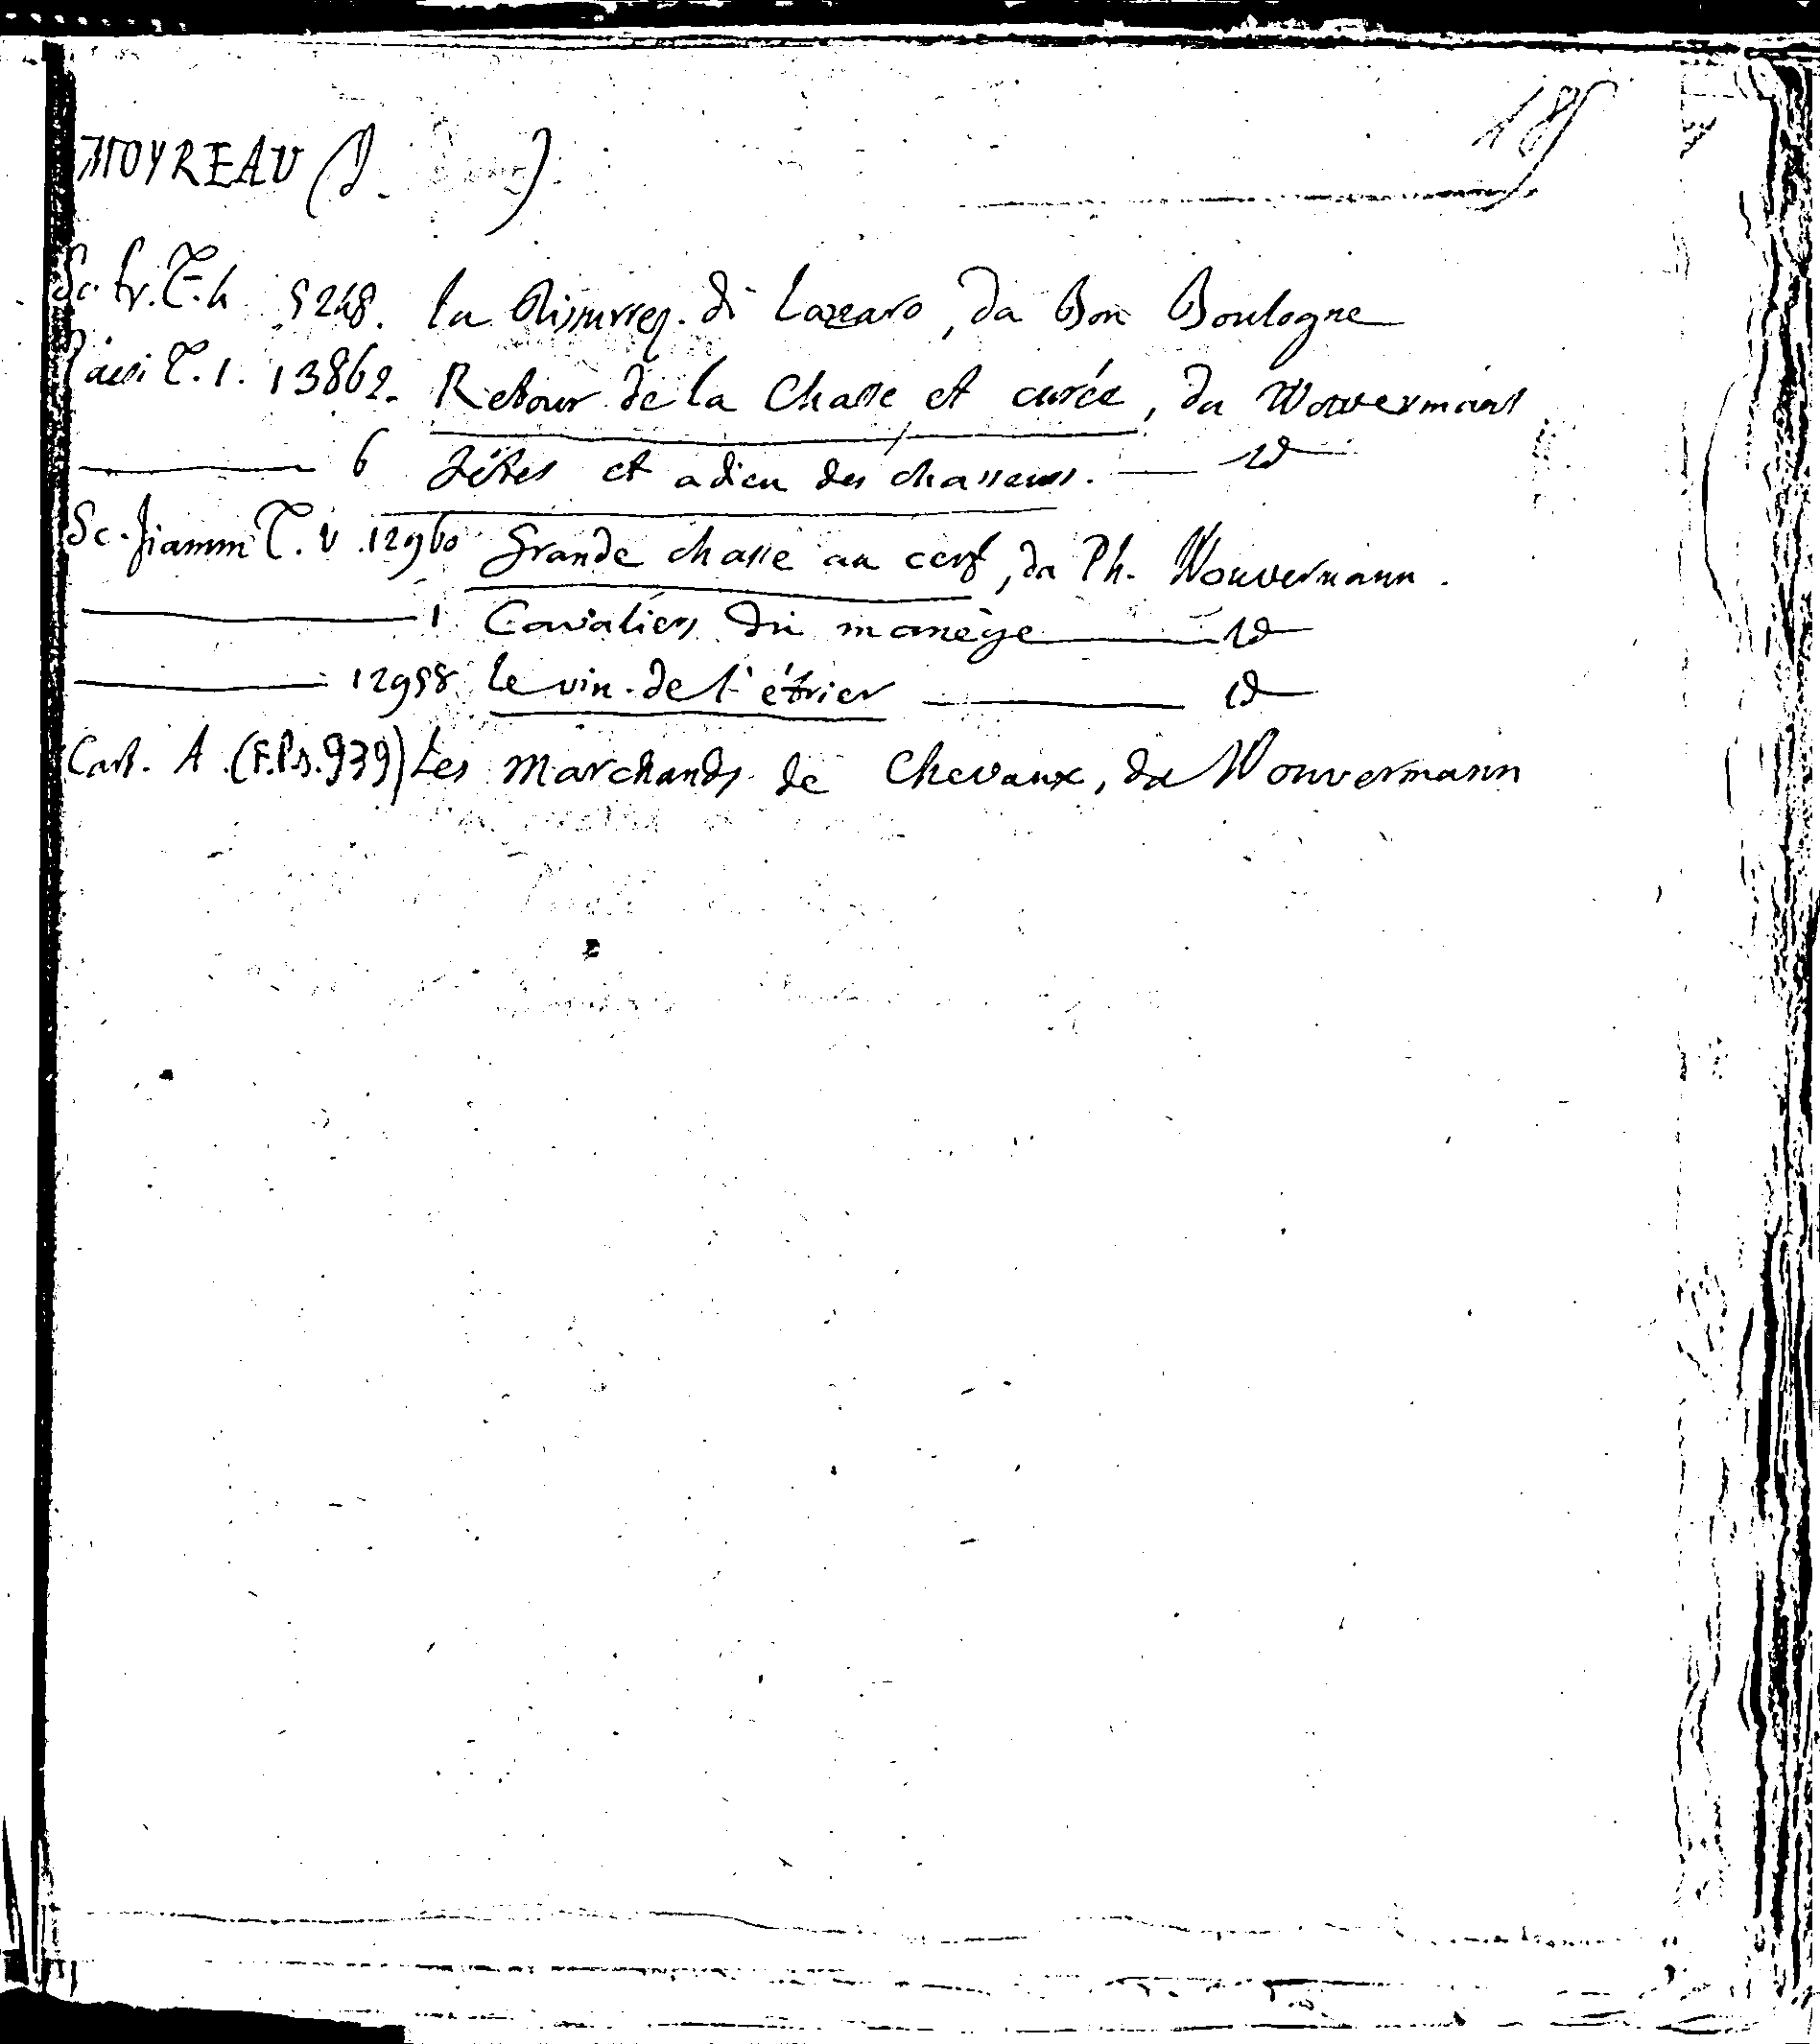 18
MOYREAU (J. )
Sc. fr. T. 4 5248. la Risurrez. di Lazzaro, da Bon Boulogne
Paesi T. 1. 13862. Retour de la Chasse et curée, da Wouvermans
6 Fêtes et adieu des chasseurs. Id
Sc. fiamm T. V. 12960 Grande chasse au cerf, da Ph. Wouvermann.
1 Cavaliers du manège Id
12958 le vin de l'étrier Id
Cart. A. (F.P.s. 939) Les Marchands de Chevaux, da Wouvermann